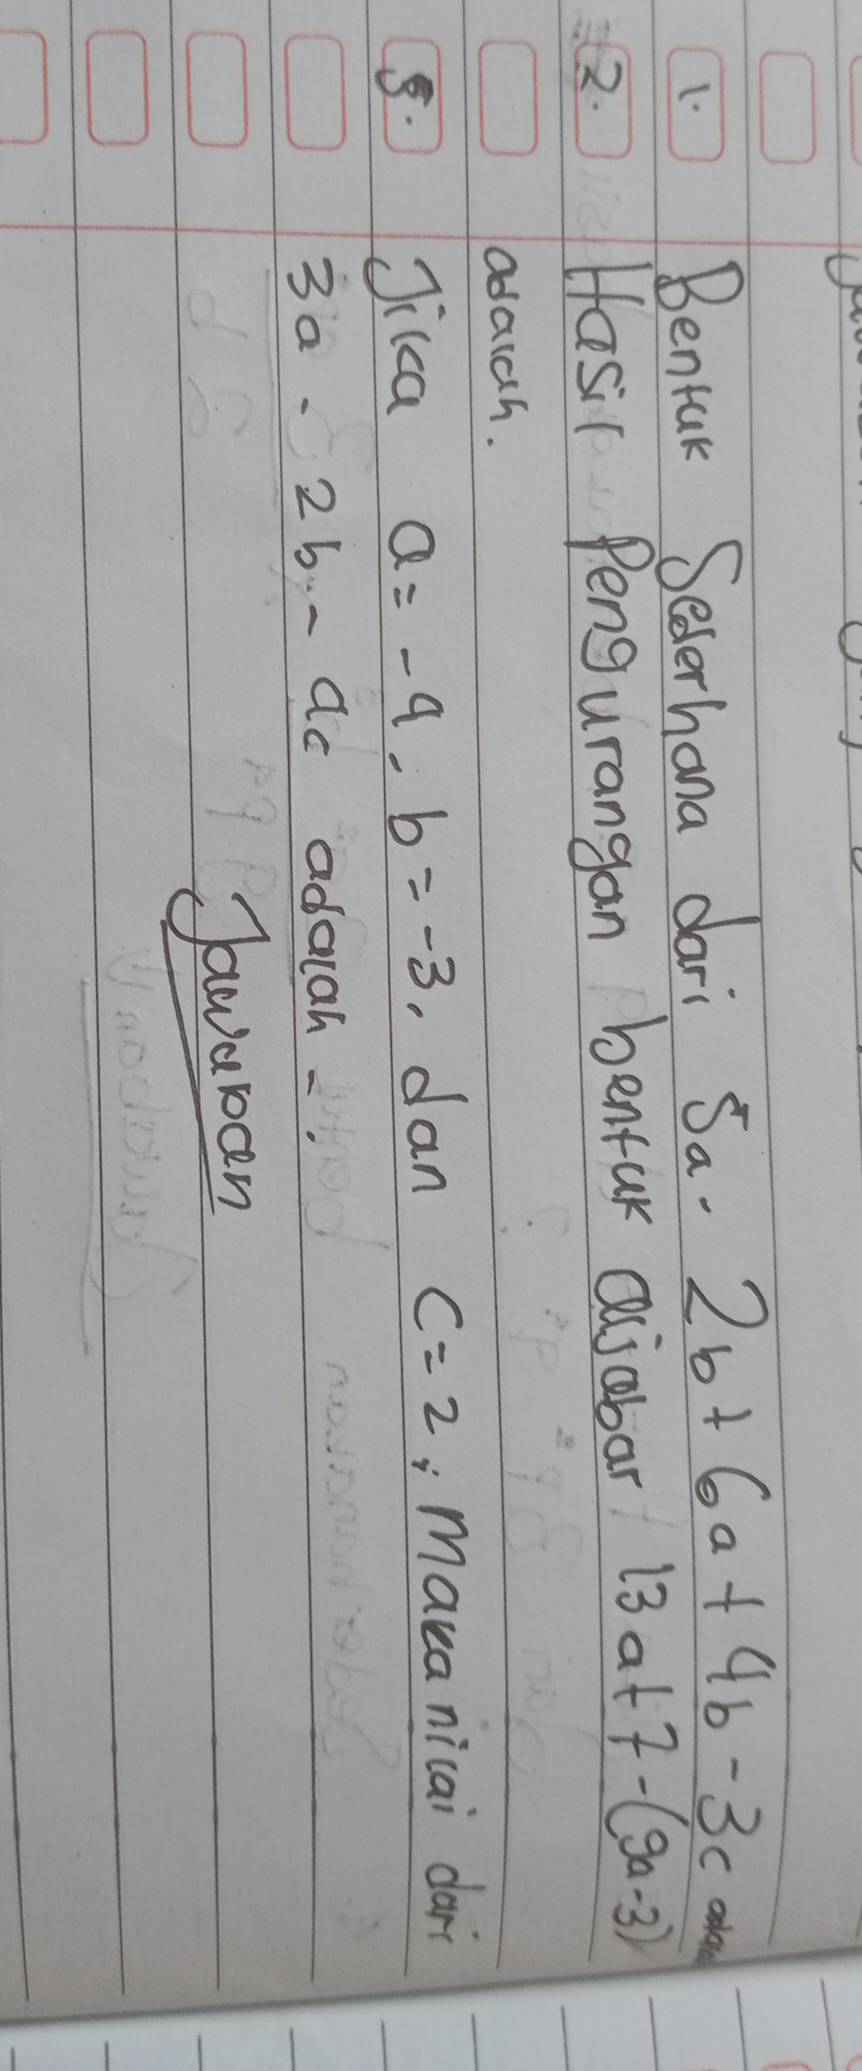 1. Bentuk Sederhana dari 5a - 2b + 6a + 4b - 3c
2. Hasil Pengurangan bentuk aljabar 13a + 7 - (9a - 3)
adalah.
5. Jika a = -4, b = -3, dan C = 2, Maka nilai dari
3a - 2b - ac adalah -.
Jawaban